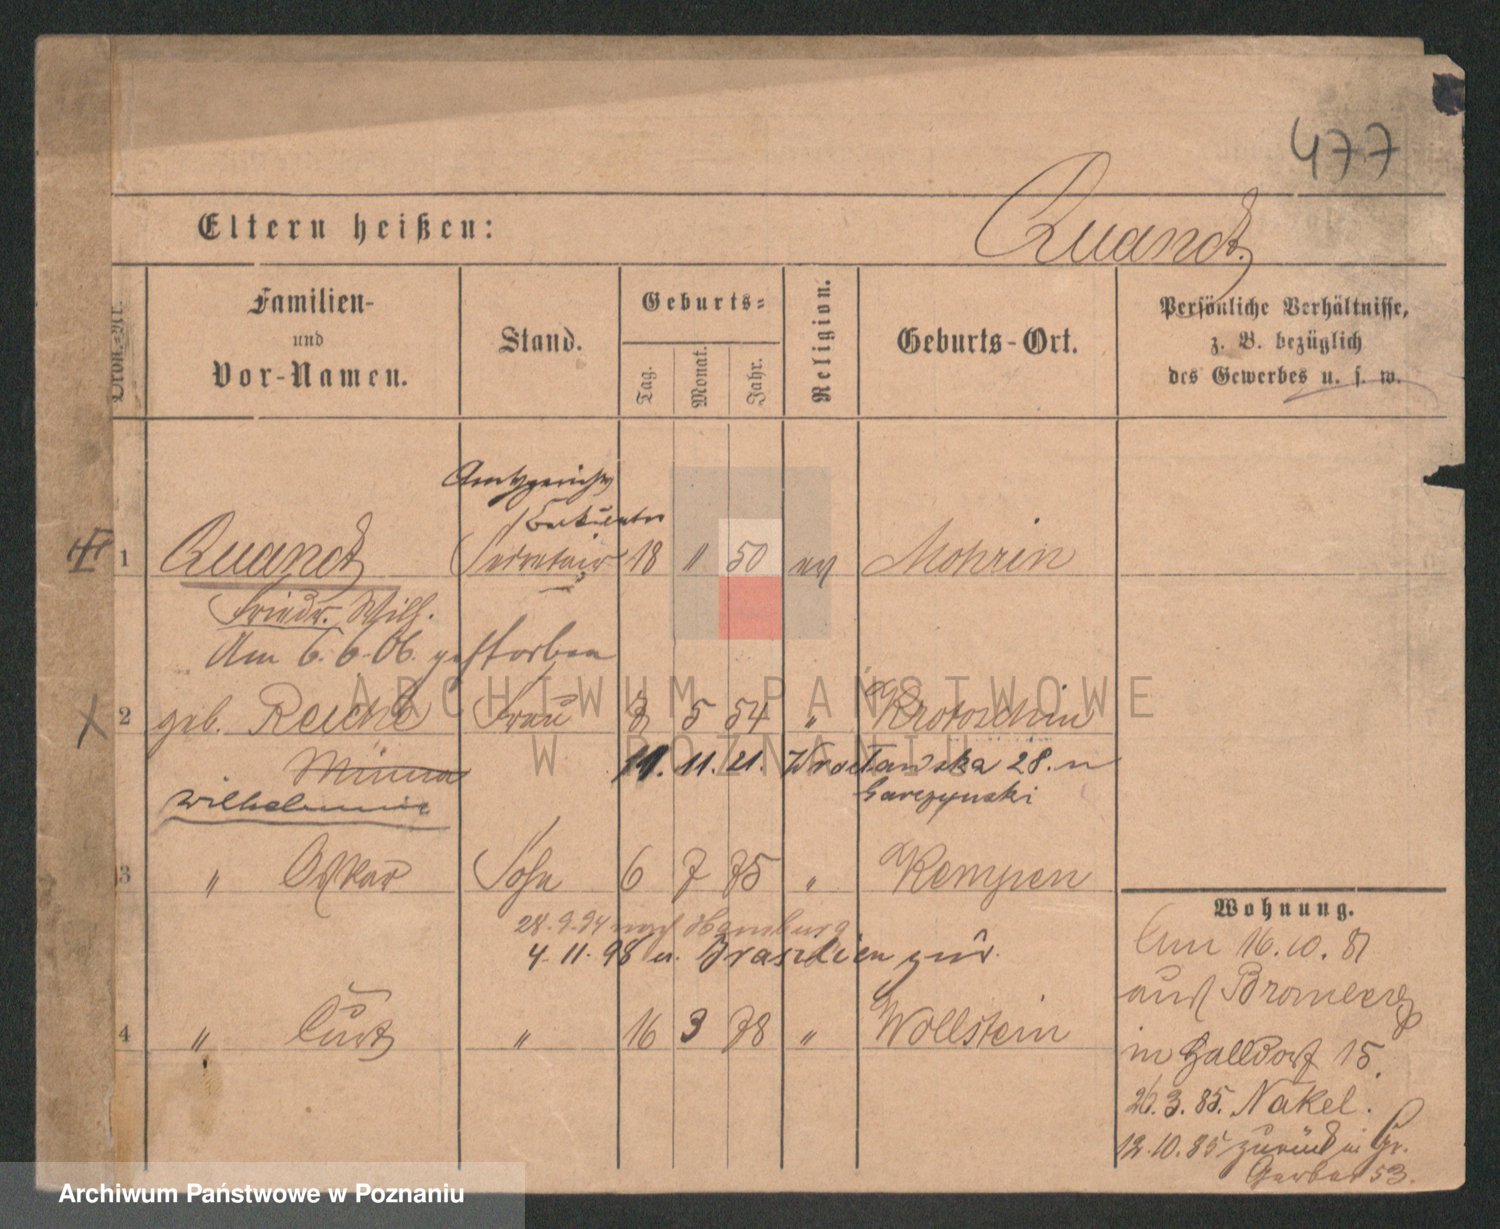 477
Eltern heißen: Quandt.
Ordn.-Nr.
Familien-
und
Vor-Namen.
Stand.
Geburts-
Tag.
Monat.
Jahr.
Religion.
Geburts-Ort.
Persönliche Verhältnisse,
z. B. bezüglich
des Gewerbes u. s. w.
Amtsgerichts
Sekretär
1 Quandt Secretair 18 " 50 ev Mohrin
Friedr. Wilh.
Am 6.6.06. gestorben
2 geb. Reiche Frau 3 5 54 " Krotoschin
Minna 11. 11. 21. Wrocławska 28. u
Wilhelmine Garczynski
3 " Oskar Sohn 6 7 75 " Kempen
28.9.94 nach Hamburg
4.11.98 u. Brasilien zur.
4 " Curt " 16 3 78 " Wollstein
Wohnung.
16.10.81
aus Bromberg
in Halldorf 15.
26.3.85. Nakel.
12.10.85 zurück in Gr.
Gerber 53.
ARCHIWUM PAŃSTWOWE
W POZNANIU
Archiwum Państwowe w Poznaniu